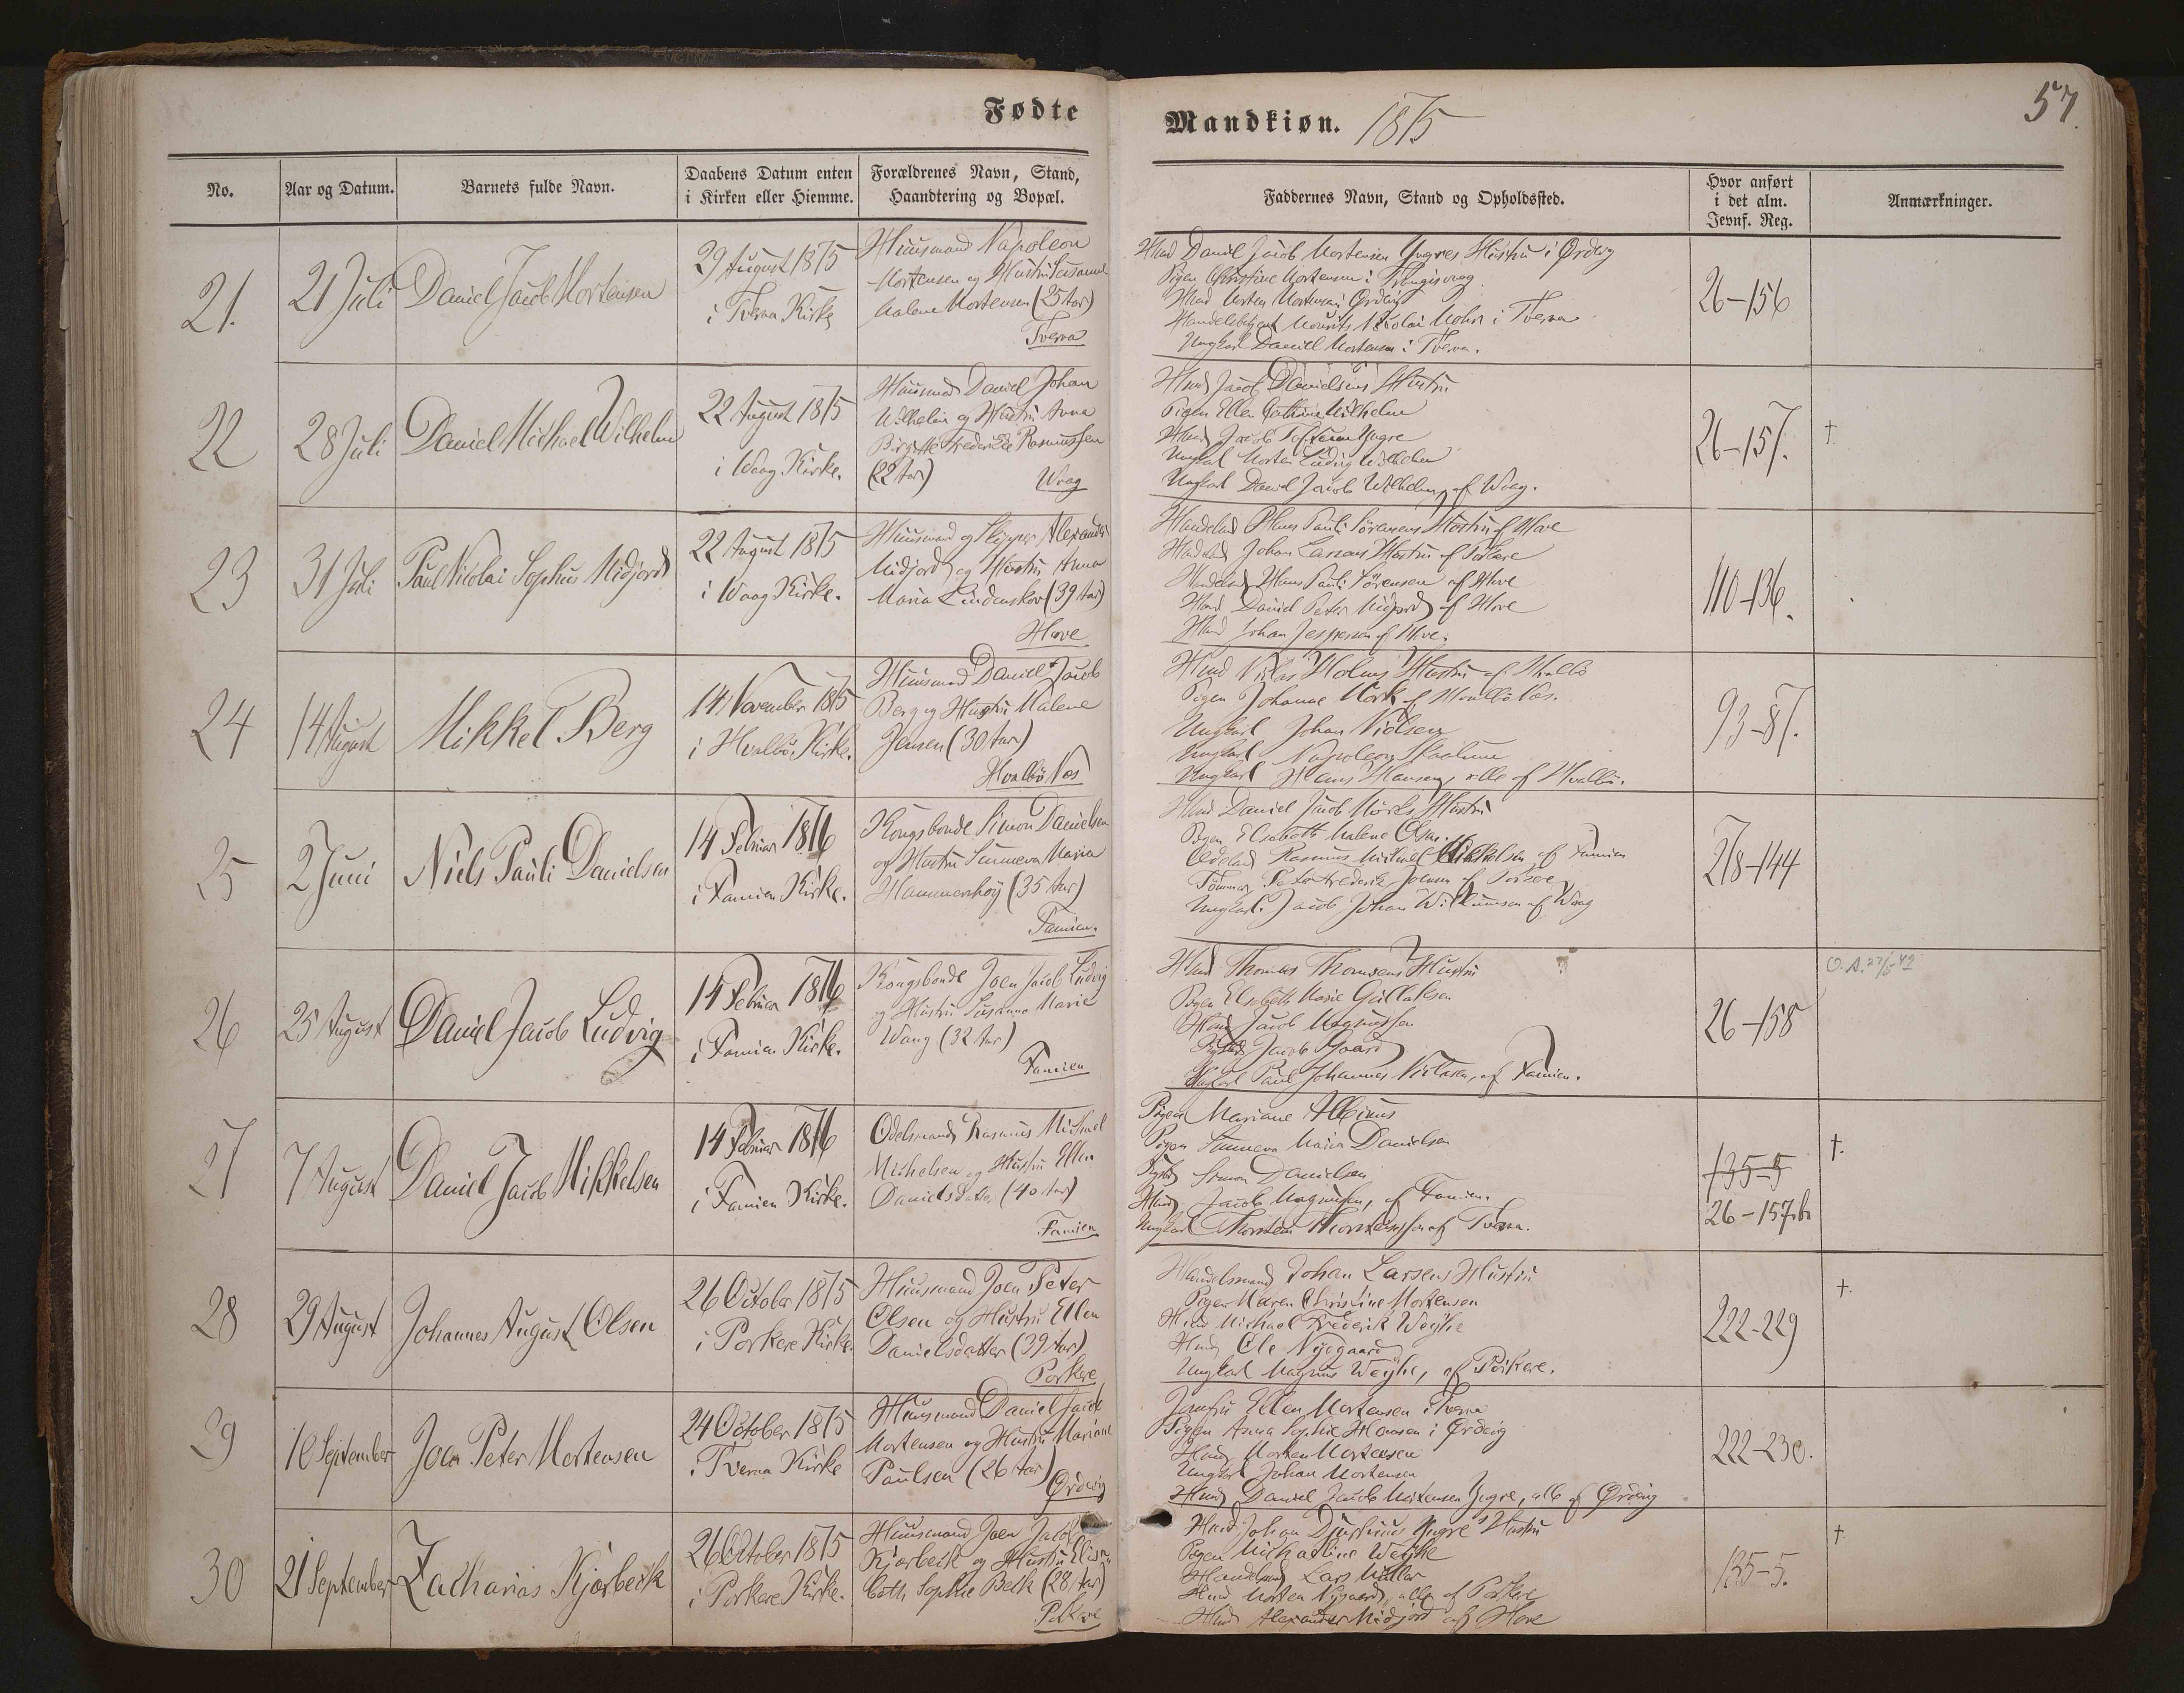 Fødte
Mandkiøn. 1875
57.
No.
Aar og Datum.
Barnets fulde Navn.
Daabens Datum enten
i Kirken eller Hiemme.
Forældrenes Navn, Stand,
Haandtering og Bopæl.
Faddernes Navn, Stand og Opholdssted.
Hvor anført
i det alm.
Jevnf. Reg.
Anmærkninger.
21.
21 Juli
Daniel Jacob Mortensen
29 August 1875
i Tveraa Kirke
Huusmand Napoleon
Mortensen og Hustru Susanne
Malene Mortensen (25 Aar)
Tveraa
Hmd Daniel Jacob Mortensen Yngres Hustru i Ørdevig
Pigen Christine Mortensen i Trangisvaag
Hmd Morten Mortensen i Ørdevig
Handelsbetjent Mourits Nicolai Mohr i Tveraa
Ungkarl Daniel Mortensen i Tveraa.
26-156
22
28 Juli
Daniel Michael Vilhelm
22 August 1875
i Waag Kirke.
Huusmand Daniel Johan
Vilhelm og Hustru Anna
Birgitte Frederikke Rasmussen
(22 Aar)
Waag
Hmd Jacob Danielsens Hustru
Pigen Ellen Cathrine Vilhelm
Hmd Jacob Yngre
Ungkarl Morten Ludvig Vilhelm
Ungkarl Daniel Jacob Vilhelm, af Waag.
26-157.
†
23
31 Juli
Paul Nicolai Sophus Midjord
22 August 1875
i Waag Kirke.
Huusmand og Skipper Alexander
Midjord og Hustru Anna
Maria Lindenskov (39 Aar)
Hove
Handelsmd Hans Pauli Sørensens Hustru af Hove
Handelsmd Johan Larsens Hustru af Porkere
Handelsmd Hans Pauli Sørensen af Hove
Hmd Daniel Peter Midjord af Hove
Hmd Johan Jespersen af Hove.
110-136.
24
14 August
Mikkel Berg
14 November 1875
i Hvalbø Kirke.
Huusmand Daniel Jacob
Berg og Hustru Malene
Jensen (30 Aar)
Hvalbø Næs
Hmd Niclas Holms Hustru af Hvalbø
Pigen Johanne Mørk af Hvalbø Næs.
Ungkarl Johan Nielsen
Ungkarl Napoleon
Ungkarl Hans Hansen, alle af Hvalbø.
93-87.
25
2 Juni
Niels Pauli Danielsen
14 Februar 1876
i Famien Kirke.
Kongsbonde Simon Danielsen
og Hustru Sunneva Maria
Hammershøy (35 Aar)
Famien.
Hmd Daniel Jacob Mørks Hustru
Pigen Elsebeth Malene Olsen
Odelsmd Rasmus Michael Mikkelsen af Famien
Tømmermd Peter Frederik Joensen af Porkere
Ungkarl Jacob Johan Villumsen af Waag
218-144
26
25 August
Daniel Jacob Ludvig
14 Februar 1876
i Famien Kirke.
Kongsbonde Joen Jacob Ludvig
og Hustru Susanna Marie
Waag (32 Aar)
Famien
Hmd Thomas Thomsens Hustru
Pigen Elsebeth Marie Gullaksen
Hmd Jacob Magnussen
Jacob Gaard
Ungkarl Paul Johannes Niclasen, af Famien.
26-158
O.A. 27/5 42
27
7 August
Daniel Jacob Mikkelsen
14 Februar 1876
i Famien Kirke.
Odelsmand Rasmus Michael
Michelsen og Hustru Ellen
Danielsdatter (40 Aar)
Famien
Pigen Mariane Albinus
Pigen Sunneva Maria Danielsen
Simon Danielsen
Hmd Jacob Magnussen, af Famien.
Ungkarl Thorstein Thorsteinsson af Tveraa.
135-5
26-157.b.
†.
28
29 August
Johannes August Olsen
26 October 1875
i Porkere Kirke.
Huusmand Joen Peter
Olsen og Hustru Ellen
Danielsdatter (39 Aar)
Porkere
Handelsmand Johan Larsens Hustru
Pigen Maren Christine Mortensen
Hmd Michael Frederik Weyhe
Hmd Ole Nygaard
Ungkarl Magnus Weyhe, af Porkere.
222-229
†.
29
10 September
Joen Peter Mortensen
24 October 1875
i Tveraa Kirke
Huusmand Daniel Jacob
Mortensen og Hustru Mariane
Paulsen (26 Aar)
Ørdevig
Jomfru Ellen Mortensen i Tveraa
Pigen Anna Sophie Hansen i Ørdevig
Hmd Morten Mortensen
Ungkarl Johan Mortensen
Hmd Daniel Jacob Mortensen Yngre, alle af Ørdevig
222-230.
30
21 September
Zacharias Kjørbeck
26 October 1875
i Porkere Kirke.
Huusmand Joen Jacob
Kjørbeck og Hustru Elisa-
beth Sophie Beck (28 Aar)
Porkere
Hmd Johan Djurhuus Yngre's Hustru
Pigen Michaeline Weyhe
Handelsmd Lars Müller
Hmd Morten Nygaard, alle af Porkere
Hmd Alexander Midjord af Hove
135-5.
†.